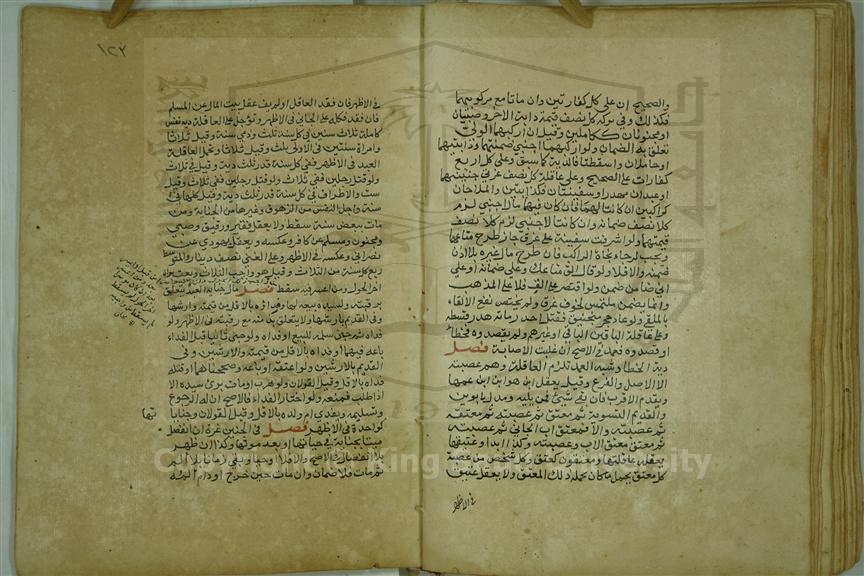 والصحيح ان على كل كفارتين وان ماتا مع مركوبيهما
فكذلك وفي تركة كل نصف قيمة دابة الاخر وصبيان
او مجنونان ككاملين وقيل ان اركبهما الولي
تعلق به الضمان ولو اركبهما اجنبي ضمنهما ودابتيهما
او حاملان واسقطتا فالدية كما سبق وعلى كل اربع
كفارات على الصحيح وعلى عاقلة كل نصف غرتي جنينيهما
او عبدان مهدرا وسفينتان فكدابتين والملاحان
كراكبين ان كانتا لهما فان كان فيها مال اجنبي لزم
كلا نصف ضمانه وان كانتا لاجنبي لزم كلا نصف
قيمتهما ولو اشرفت سفينة على غرق جاز طرح متاعها
ويجب لرجاء نجاة الراكب فان طرح مال غيره بلا اذن
ضمنه والا فلا ولو قال الق متاعك وعلي ضمانه او على
اني ضامن ضمن ولو اقتصر على الق فلا على المذهب
وانما يضمن ملتمس لخوف غرق ولم يختص نفع الالقاء
بالملقي ولو عاد حجر منجنيق فقتل احد رماته هدر قسطه
وعلى عاقلة الباقين الباقي او غيرهم ولم يقصدوه فخطأ
او قصدوه فعمد في الاصح ان غلبت الاصابة فصل
دية الخطا وشبه العمد تلزم العاقلة وهم عصبته
الا الاصل والفرع وقيل يعقل ابن هو ابن ابن عمها
ويقدم الاقرب فان بقي شيء فمن يليه ومدل بابوين
والقديم التسوية ثم معتق ثم عصبته ثم معتقه
ثم عصبته والا فمعتق اب الجاني ثم عصبته
ثم معتق معتق الاب وعصبته وكذا ابدا وعتيقها
يعقله عاقلتها ومعتقون كمعتق وكل شخص من عصبة
كل معتق يحمل ما كان يحمله ذلك المعتق ولا يعقل عتيق
في الاظهر
١٢٧
في الاظهر فان فقد العاقل او لم يف عقل بيت المال عن المسلم
فان فقد فكله على الجاني في الاظهر وتؤجل على العاقلة دية نفس
كاملة ثلاث سنين في كل سنة ثلث وذمي سنة وقيل ثلاثا
وامراة سنتين في الاولى ثلث وقيل ثلاثا وتحمل العاقلة
العبد في الاظهر ففي كل سنة قدر ثلث دية وقيل في ثلاث
ولو قتل رجلين ففي ثلاث ولو قتل رجلين ففي ثلاث وقيل
ست والاطراف في كل سنة قدر ثلث دية وقيل كلها في
سنة واجل النفس من الزهوق وغيرها من الجناية ومن
مات ببعض سنة سقط ولا يعقل فقير ورقيق وصبي
ومجنون ومسلم عن كافر وعكسه ويعقل يهودي عن
نصراني وعكسه في الاظهر وعلى الغني نصف دينار والمتوسط
ربع كل سنة من الثلاث وقيل هو واجب الثلاث ويعتبران
اخر الحول ومن اعسر فيه سقط فصل مال جناية العبد يتعلق
برقبته ولسيده بيعه لها وفداؤه بالاقل من قيمته وارشها
وفي القديم بارشها ولا يتعلق بذمته مع رقبته في الاظهر ولو
فداه ثم جنى سلمه للبيع او فداه ولو جنى ثانيا قبل الفداء
باعه فيهما او فداه بالاقل من قيمته والارشين وفي
القديم بالارشين ولو اعتقه او باعه وصححناهما او قتله
فداه بالاقل وقيل القولان ولو هرب او مات برئ سيده الا
اذا طلب فمنعه ولو اختار الفداء فالاصح ان له الرجوع
وتسليمه ويفدي ام ولده بالاقل وقيل القولان وجناياتها
كواحدة في الاظهر فصل في الجنين غرة ان انفصل
ميتا بجناية في حياتها او بعد موتها وكذا ان ظهر
بلا انفصال في الاصح والا فلا او حيا وبقي زمانا بلا الم
ثم مات فلا ضمان وان مات حين خرج او دام المه